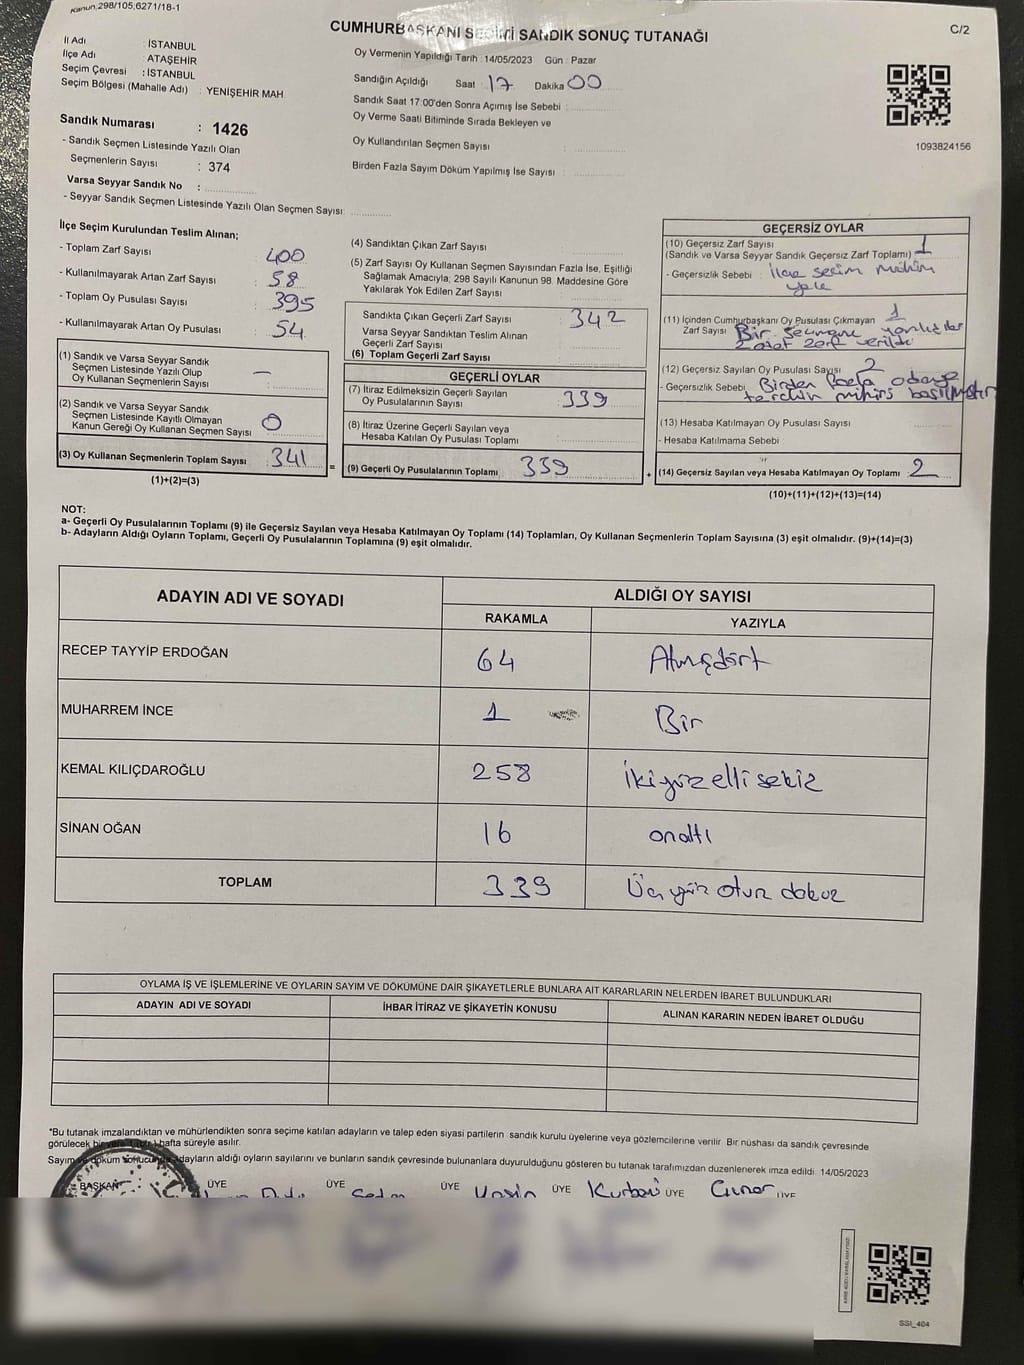 Kanun,298/105,6271/18-1
CUMHURBAŞKANI SEÇİMİ SANDIK SONUÇ TUTANAĞI
C/2
İl Adı : İSTANBUL
İlçe Adı : ATAŞEHİR
Seçim Çevresi : İSTANBUL
Seçim Bölgesi (Mahalle Adı) : YENİŞEHİR MAH.
Oy Vermenin Yapıldığı Tarih : 14/05/2023 Gün : Pazar
Sandığın Açıldığı Saat 17 Dakika 00
Sandık Saat 17:00'den Sonra Açımış İse Sebebi :
Oy Verme Saati Bitiminde Sırada Bekleyen ve
Oy Kullandırılan Seçmen Sayısı :
Birden Fazla Sayım Döküm Yapılmış İse Sayısı :
1093824156
Sandık Numarası : 1426
- Sandık Seçmen Listesinde Yazılı Olan
Seçmenlerin Sayısı : 374
Varsa Seyyar Sandık No :
- Seyyar Sandık Seçmen Listesinde Yazılı Olan Seçmen Sayısı:
İlçe Seçim Kurulundan Teslim Alınan;
- Toplam Zarf Sayısı : 400
- Kullanılmayarak Artan Zarf Sayısı : 58
- Toplam Oy Pusulası Sayısı : 395
- Kullanılmayarak Artan Oy Pusulası : 54
(1) Sandık ve Varsa Seyyar Sandık
Seçmen Listesinde Yazılı Olup
Oy Kullanan Seçmenlerin Sayısı : —
(2) Sandık ve Varsa Seyyar Sandık
Seçmen Listesinde Kayıtlı Olmayan
Kanun Gereği Oy Kullanan Seçmen Sayısı : 0
(3) Oy Kullanan Seçmenlerin Toplam Sayısı : 341
(1)+(2)=(3)
(4) Sandıktan Çıkan Zarf Sayısı :
(5) Zarf Sayısı Oy Kullanan Seçmen Sayısından Fazla İse, Eşitliği
Sağlamak Amacıyla, 298 Sayılı Kanunun 98. Maddesine Göre
Yakılarak Yok Edilen Zarf Sayısı :
Sandıkta Çıkan Geçerli Zarf Sayısı : 342
Varsa Seyyar Sandıktan Teslim Alınan
Geçerli Zarf Sayısı :
(6) Toplam Geçerli Zarf Sayısı :
GEÇERLİ OYLAR
(7) İtiraz Edilmeksizin Geçerli Sayılan
Oy Pusulalarının Sayısı : 339
(8) İtiraz Üzerine Geçerli Sayılan veya
Hesaba Katılan Oy Pusulası Toplamı :
= (9) Geçerli Oy Pusulalarının Toplamı : 339 +
GEÇERSİZ OYLAR
(10) Geçersiz Zarf Sayısı
(Sandık ve Varsa Seyyar Sandık Geçersiz Zarf Toplamı) : 1
- Geçersizlik Sebebi : İlçe seçim mührü
yok
(11) İçinden Cumhurbaşkanı Oy Pusulası Çıkmayan 1
Zarf Sayısı : Bir seçmene
2 adet zarf verildi
(12) Geçersiz Sayılan Oy Pusulası Sayısı : 2
- Geçersizlik Sebebi : Birden fazla adaya
tercih mührü basılmıştır
(13) Hesaba Katılmayan Oy Pusulası Sayısı :
- Hesaba Katılmama Sebebi :
(14) Geçersiz Sayılan veya Hesaba Katılmayan Oy Toplamı : 2
(10)+(11)+(12)+(13)=(14)
NOT:
a- Geçerli Oy Pusulalarının Toplamı (9) ile Geçersiz Sayılan veya Hesaba Katılmayan Oy Toplamı (14) Toplamları, Oy Kullanan Seçmenlerin Toplam Sayısına (3) eşit olmalıdır. (9)+(14)=(3)
b- Adayların Aldığı Oyların Toplamı, Geçerli Oy Pusulalarının Toplamına (9) eşit olmalıdır.
ADAYIN ADI VE SOYADI ALDIĞI OY SAYISI
RAKAMLA YAZIYLA
RECEP TAYYİP ERDOĞAN 64 Atmışdört
MUHARREM İNCE 1 Bir
KEMAL KILIÇDAROĞLU 258 İkiyüzellisekiz
SİNAN OĞAN 16 onaltı
TOPLAM 339 Üçyüz otuz dokuz
OYLAMA İŞ VE İŞLEMLERİNE VE OYLARIN SAYIM VE DÖKÜMÜNE DAİR ŞİKAYETLERLE BUNLARA AİT KARARLARIN NELERDEN İBARET BULUNDUKLARI
ADAYIN ADI VE SOYADI İHBAR İTİRAZ VE ŞİKAYETİN KONUSU ALINAN KARARIN NEDEN İBARET OLDUĞU
*Bu tutanak imzalandıktan ve mühürlendikten sonra seçime katılan adayların ve talep eden siyasi partilerin sandık kurulu üyelerine veya gözlemcilerine verilir. Bir nüshası da sandık çevresinde
görülecek bir yere 1 (bir) hafta süreyle asılır.
Sayım ve döküm sonucunda adayların aldığı oyların sayılarını ve bunların sandık çevresinde bulunanlara duyurulduğunu gösteren bu tutanak tarafımızdan düzenlenerek imza edildi. 14/05/2023
BAŞKAN ÜYE ÜYE ÜYE ÜYE ÜYE ÜYE
SSI_404